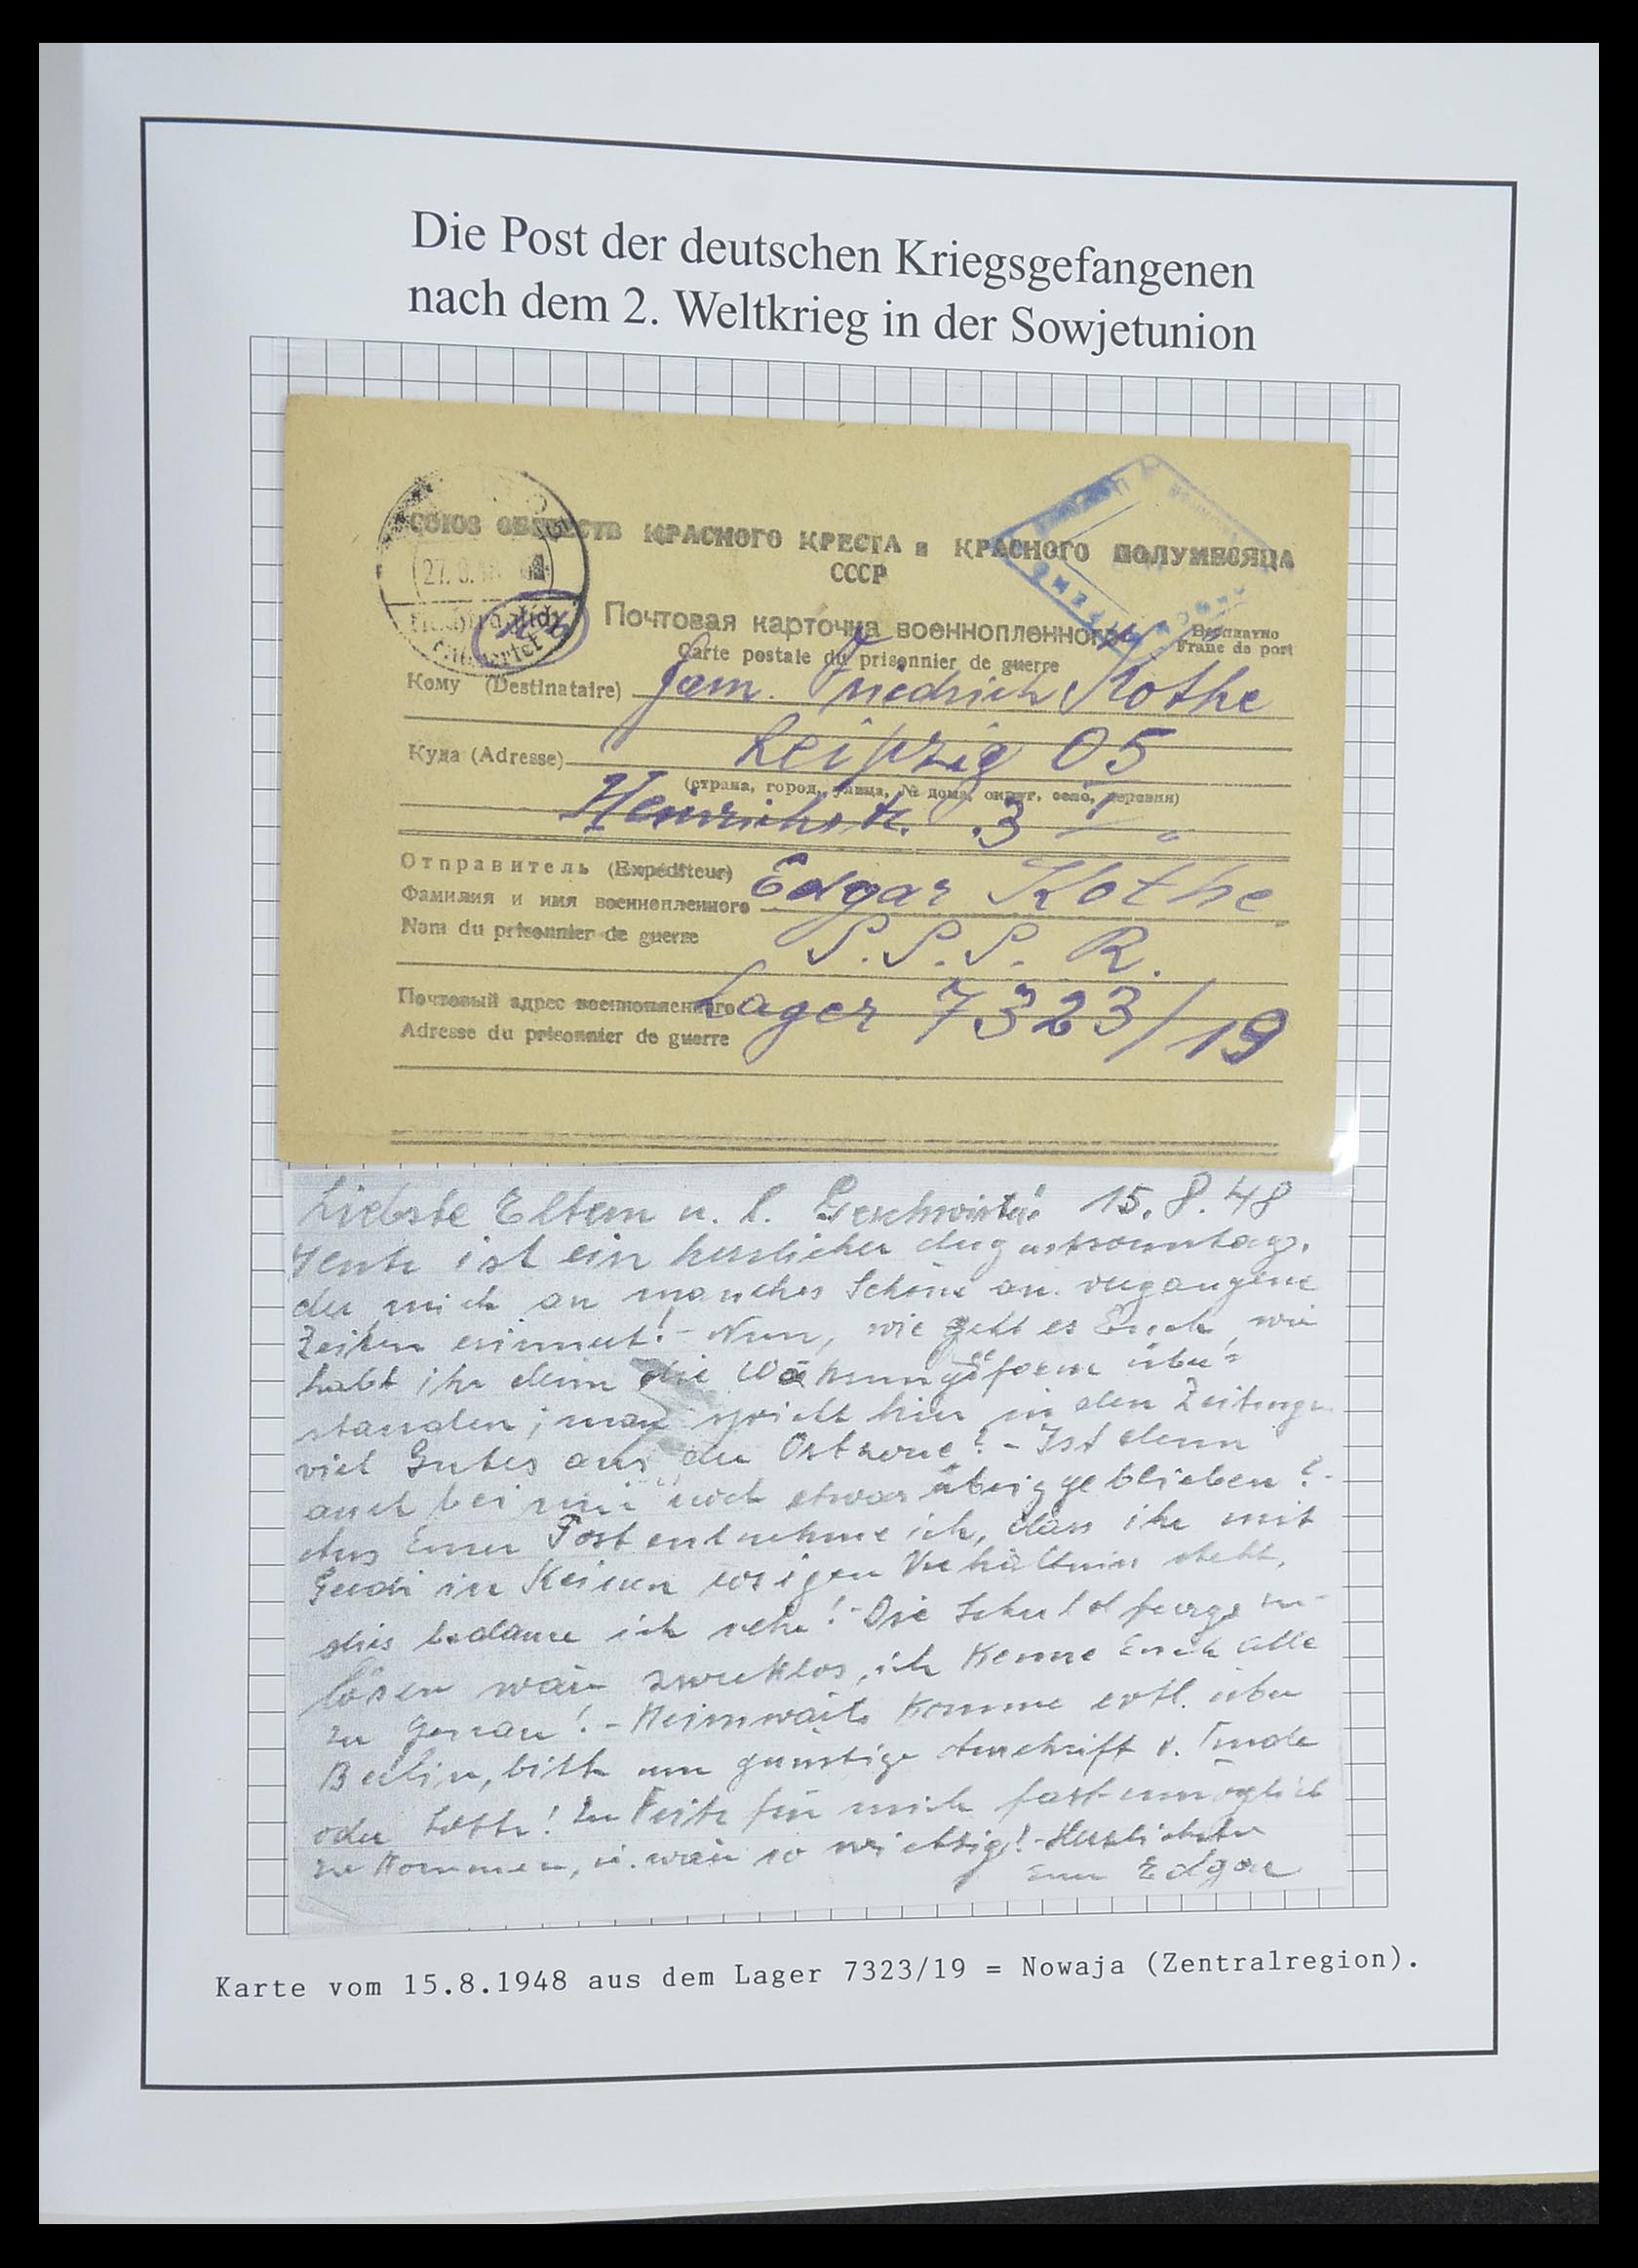 Die Post der deutschen Kriegsgefangenen
nach dem 2. Weltkrieg in der Sowjetunion
СОЮЗ ОБЩЕСТВ КРАСНОГО КРЕСТА и КРАСНОГО ПОЛУМЕСЯЦА
СССР
27.8.48
Почтовая карточка военнопленного
Бесплатно
Carte postale du prisonnier de guerre
Franc de port
Кому (Destinataire) Fam. Friedrich Kothe
Куда (Adresse) Leipzig O5
(страна, город, улица, № дома, округ, село, деревня)
Heinrichstr. 3 I
Отправитель (Expéditeur) Edgar Kothe
Фамилия и имя военнопленного
Nom du prisonnier de guerre
S.S.S.R.
Почтовый адрес военнопленного Lager 7323/19
Adresse du prisonnier de guerre
Liebste Eltern u. l. Geschwister! 15.8.48
Heute ist ein herrlicher Augustsonntag,
der mich an manches Schöne an vergangene
Zeiten erinnert! - Nun, wie geht es Euch, wie
habt ihr denn die Währungsreform über=
standen; man spricht hier in den Zeitungen
viel Gutes aus der Ostzone! - Ist denn
auch bei mir noch etwas übriggeblieben? -
Aus Eurer Post entnehme ich, dass ihr mit
in keinem rosigen Verhältnis steht,
dies bedaure ich sehr! - Die Schuldfrage zu
lösen wär zwecklos, ich kenne Euch alle
zu genau! - Heimwärts komme evtl. über
Berlin, bitte um günstige Anschrift v.
oder Lotte! Zu Fritz für mich fast unmöglich
zu kommen, u. wär so wichtig! - Herzlichst
Euer Edgar
Karte vom 15.8.1948 aus dem Lager 7323/19 = Nowaja (Zentralregion).